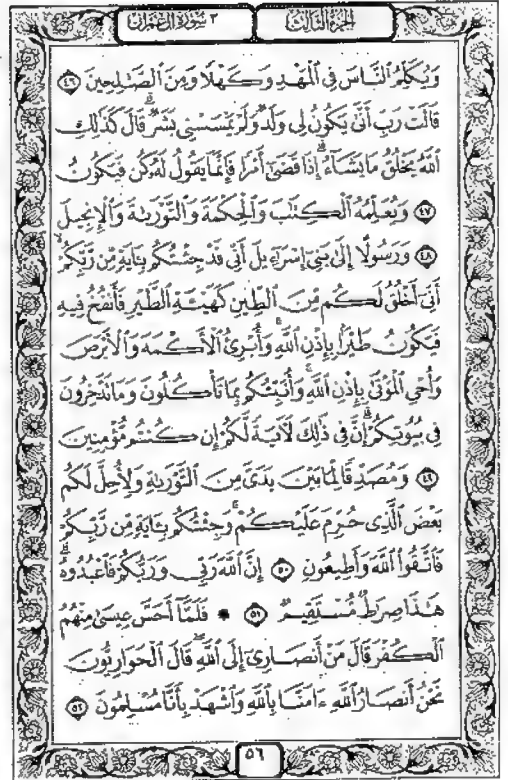 الجزء الثالث
٣ سورة آل عمران
وَيُكَلِّمُ ٱلنَّاسَ فِي ٱلْمَهْدِ وَكَهْلًا وَمِنَ ٱلصَّٰلِحِينَ ٤٦
قَالَتْ رَبِّ أَنَّىٰ يَكُونُ لِي وَلَدٌ وَلَمْ يَمْسَسْنِي بَشَرٌ ۖ قَالَ كَذَٰلِكِ
ٱللَّهُ يَخْلُقُ مَا يَشَآءُ ۚ إِذَا قَضَىٰٓ أَمْرًا فَإِنَّمَا يَقُولُ لَهُۥ كُن فَيَكُونُ
٤٧ وَيُعَلِّمُهُ ٱلْكِتَٰبَ وَٱلْحِكْمَةَ وَٱلتَّوْرَىٰةَ وَٱلْإِنجِيلَ
٤٨ وَرَسُولًا إِلَىٰ بَنِيٓ إِسْرَٰٓءِيلَ أَنِّي قَدْ جِئْتُكُم بِـَٔايَةٍ مِّن رَّبِّكُمْ
أَنِّيٓ أَخْلُقُ لَكُم مِّنَ ٱلطِّينِ كَهَيْـَٔةِ ٱلطَّيْرِ فَأَنفُخُ فِيهِ
فَيَكُونُ طَيْرًۢا بِإِذْنِ ٱللَّهِ ۖ وَأُبْرِئُ ٱلْأَكْمَهَ وَٱلْأَبْرَصَ
وَأُحْيِ ٱلْمَوْتَىٰ بِإِذْنِ ٱللَّهِ ۖ وَأُنَبِّئُكُم بِمَا تَأْكُلُونَ وَمَا تَدَّخِرُونَ
فِي بُيُوتِكُمْ ۚ إِنَّ فِي ذَٰلِكَ لَـَٔايَةً لَّكُمْ إِن كُنتُم مُّؤْمِنِينَ
٤٩ وَمُصَدِّقًا لِّمَا بَيْنَ يَدَيَّ مِنَ ٱلتَّوْرَىٰةِ وَلِأُحِلَّ لَكُم
بَعْضَ ٱلَّذِي حُرِّمَ عَلَيْكُمْ ۚ وَجِئْتُكُم بِـَٔايَةٍ مِّن رَّبِّكُمْ
فَٱتَّقُوا۟ ٱللَّهَ وَأَطِيعُونِ ٥٠ إِنَّ ٱللَّهَ رَبِّي وَرَبُّكُمْ فَٱعْبُدُوهُ ۗ
هَٰذَا صِرَٰطٌ مُّسْتَقِيمٌ ٥١ ۞ فَلَمَّآ أَحَسَّ عِيسَىٰ مِنْهُمُ
ٱلْكُفْرَ قَالَ مَنْ أَنصَارِيٓ إِلَى ٱللَّهِ ۖ قَالَ ٱلْحَوَارِيُّونَ
نَحْنُ أَنصَارُ ٱللَّهِ ءَامَنَّا بِٱللَّهِ وَٱشْهَدْ بِأَنَّا مُسْلِمُونَ ٥٢
٥٦